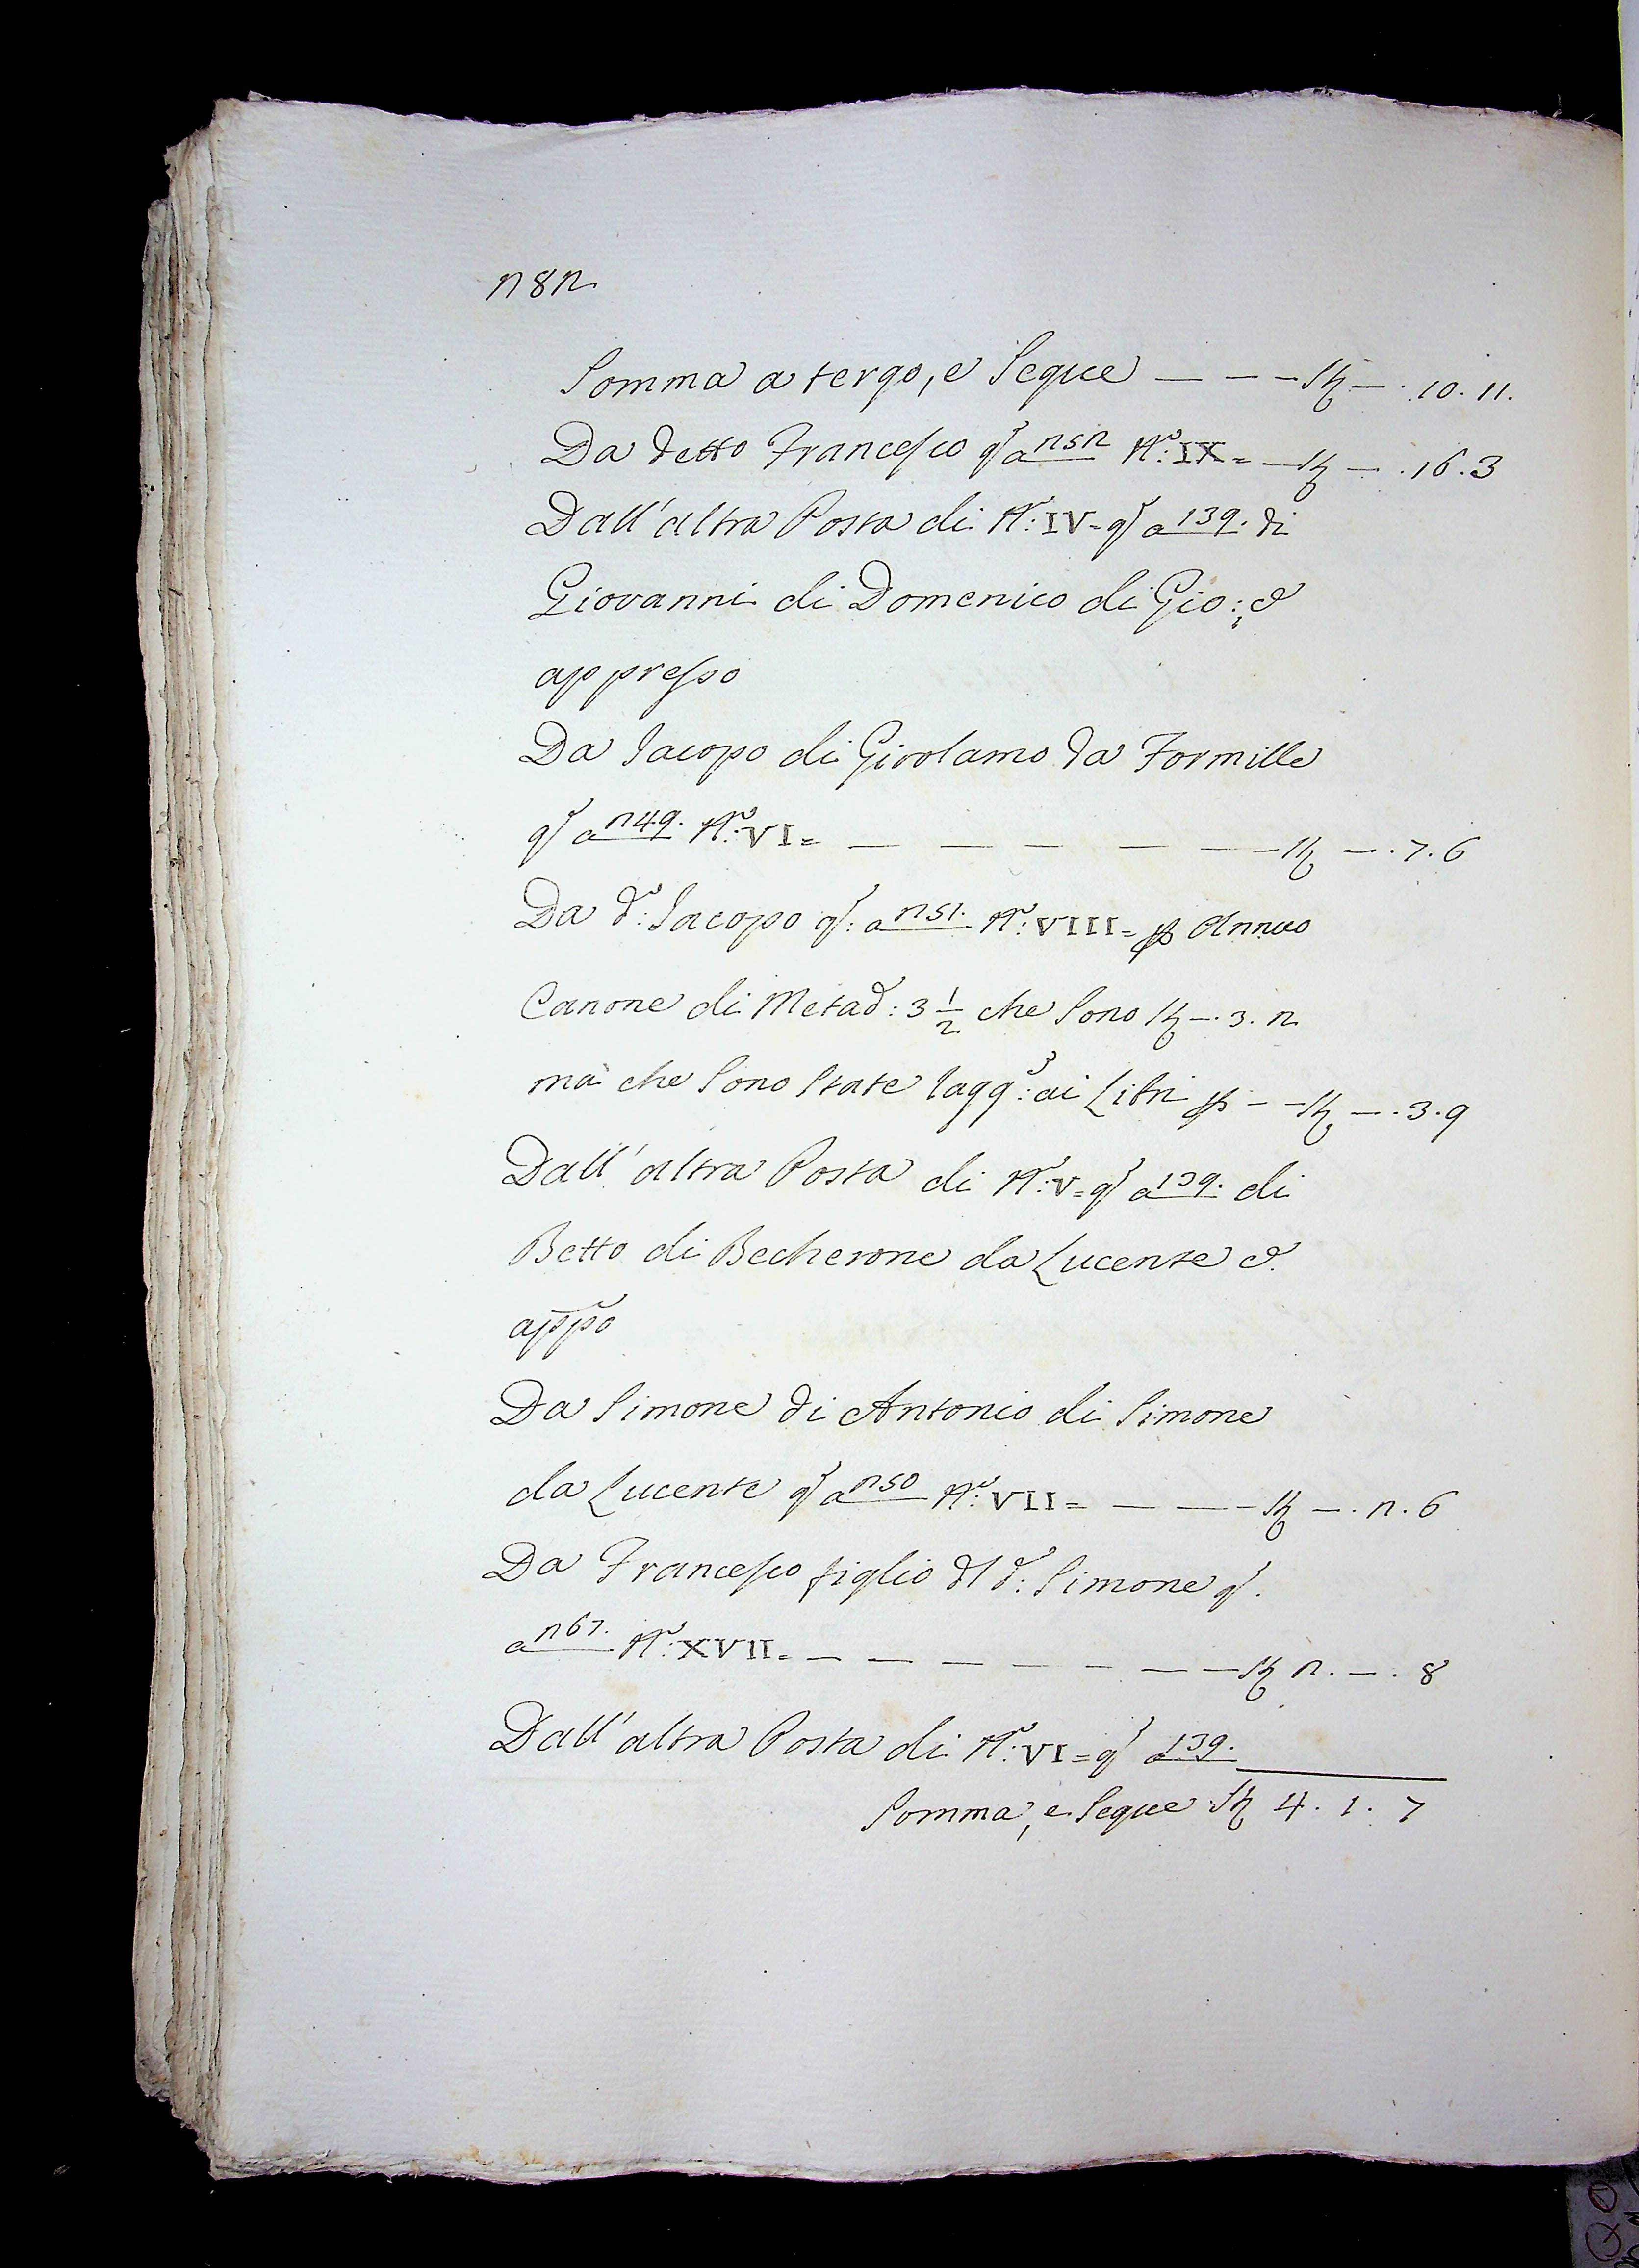 282
Somma a tergo, e Segue — — — St — . 10 . 11.
Da detto Francesco q̃ a 252 N.º IX = — St — . 16 . 3
Dall'altra Posta di N.º IV = q̃ a 139. di
Giovanni di Domenico di Gio:, e
appresso
Da Jacopo di Girolamo da Formille
q̃ a 249. N.º VI = — — — — — St — . 7 . 6
Da d.º Jacopo q̃: a 251. N.º VIII = p Annuo
Canone di Metad: 3 1/2 che Sono St — . 3 . 2
mà che Sono State ragg.e ai Libri p — — St — . 3 . 9
Dall'altra Posta di N.º V = q̃ a 139. di
Betto di Becherone da Lucente e.
app̃o
Da Simone di Antonio di Simone
da Lucente q̃ a 250 N.º VII = — — — St — . 2 . 6
Da Francesco figlio dl d.º Simone q̃.
a 267. N.º XVII = — — — — — — — St 2 . — . 8
Dall'altra Posta di N.º VI = q̃ a 139.
Somma, e Segue St 4 . 1 . 7